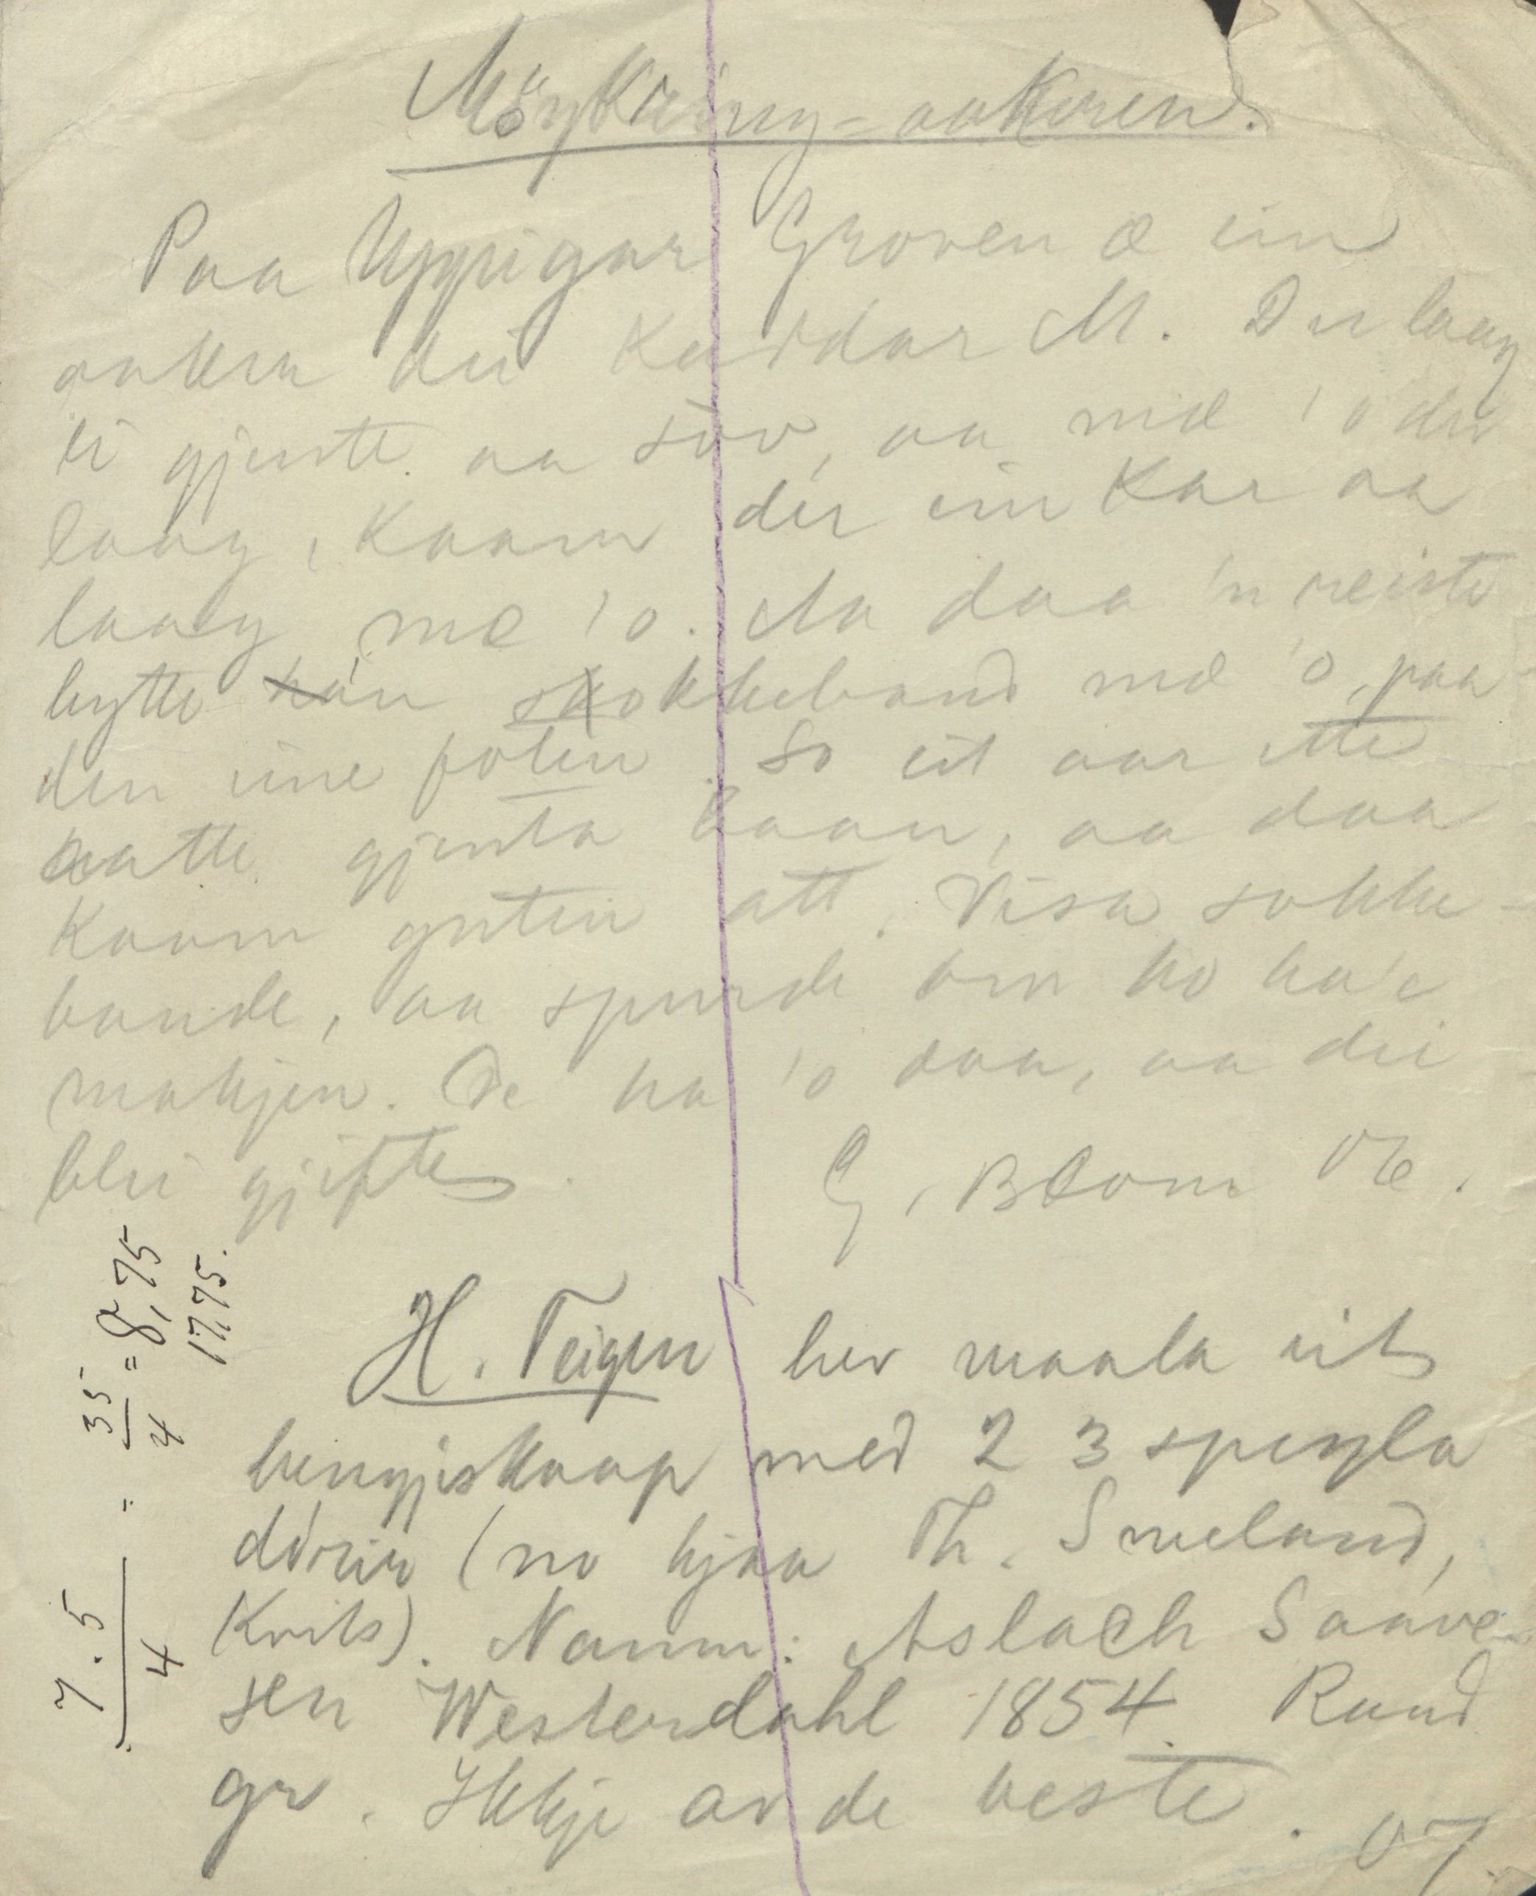 Möykring-aakeren.
Paa Uppigar Groven æ ein
aaker dei kaddar M. Der laag
ei gjente aa söv, aa mæ 'o der
laag, kaam der ein kar aa
laag mæ 'o. Aa daa 'n reiste
bytte han sokkeband mæ 'o paa
den eine foten. So eit aar ette
hatte gjenta baan, aa daa
kaam guten att, Visa sokke-
bande, aa spurde om ho ha'e
makjen. De ha 'o daa, aa dei
blei gjifte.
G. Blom Ø.
H. Teigen hev maala eit
hengjeskaap med 2 3 spegla
dörir (no hjaa Th. Sneland,
Kvits). Namn: Aslach Saave-
sen Westerdahl 1854. Raud
gr. Ikkje av de beste. 07.
7.5/4 = 35/4 = 8,75
17,75.